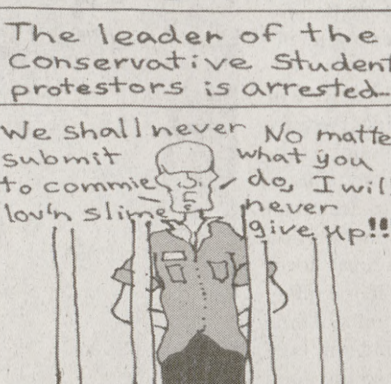 The leader of the
Conservative Student
protestors is arrested...
We shall never
submit
to commie
lov'n slime
No matte
what you
do, I wil
never
give up!!